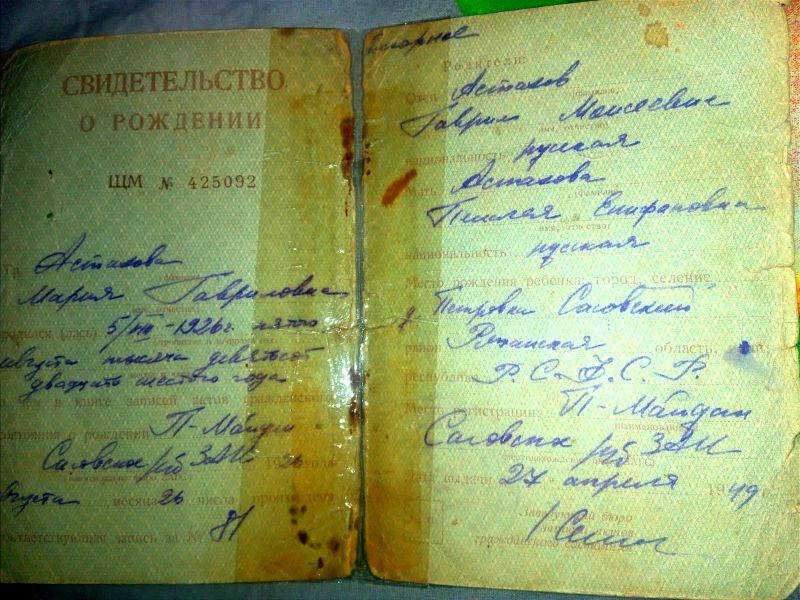 СВИДЕТЕЛЬСТВО
О РОЖДЕНИИ
ЩМ № 425092
Гр. Астахова
Мария Гавриловна
родился (лась) 5/VIII-1926г. пятого
августа тысяча девятсот
двадцать шестого года
о чем в книге записей актов гражданского
состояния о рождении П-Майдан
Сасовск 1926 года
августа месяца 26 числа произведена
соответствующая запись за № 81
Родители:
Отец Астахов
Гаврил Моисеевич
национальность руская
Мать Астахова
Пелагея Епифановна
национальность руская
Место рождения ребенка: город, селение
д. Петровка Сасовский
район Рязанская область, край
республика Р.С.Ф.С.Р.
Место регистрации: П-Майдан
Сасовск
Дата выдачи 27 апреля 1949
Заведующий бюро
записей актов
гражданского состояния